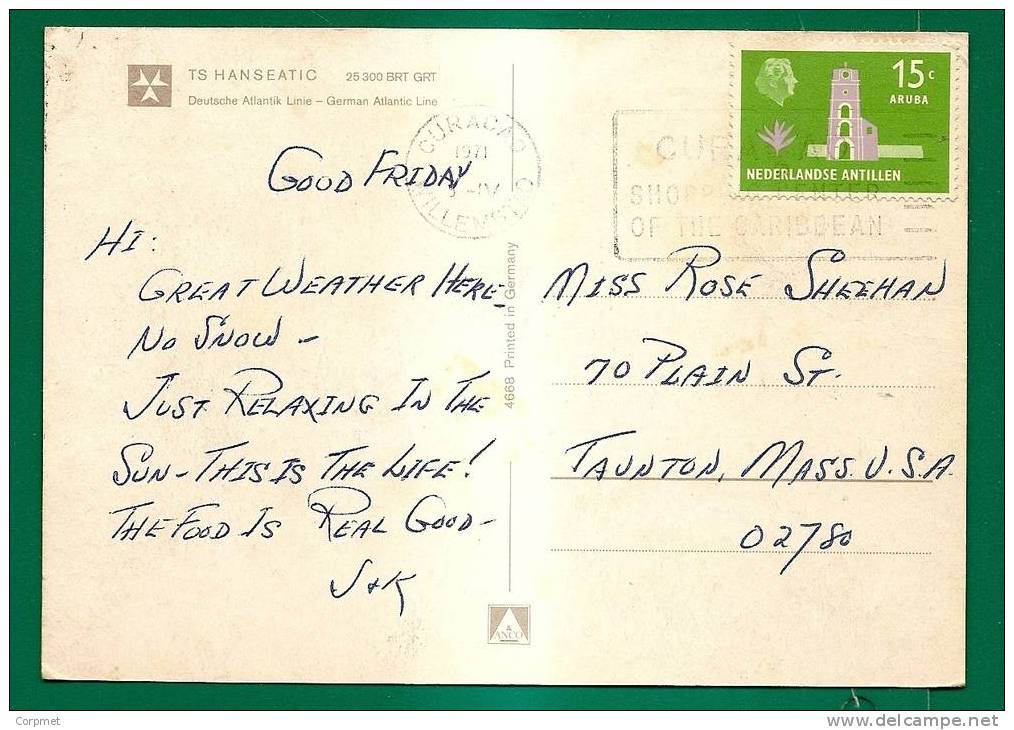 TS HANSEATIC 25 300 BRT GRT
Deutsche Atlantik Linie – German Atlantic Line
GOOD FRIDAY
HI:
GREAT WEATHER HERE–
NO SNOW –
JUST RELAXING IN THE
SUN – THIS IS THE LIFE!
THE FOOD IS REAL GOOD –
J+K
4668 Printed in Germany
ANCO
CURACAO
1971
-IV
WILLEMSTAD
15c
ARUBA
NEDERLANDSE ANTILLEN
CURACAO
SHOPPING CENTER
OF THE CARIBBEAN
MISS ROSE SHEEHAN
70 PLAIN ST.
TAUNTON, MASS. U.S.A.
02780
Corpmet
www.delcampe.net